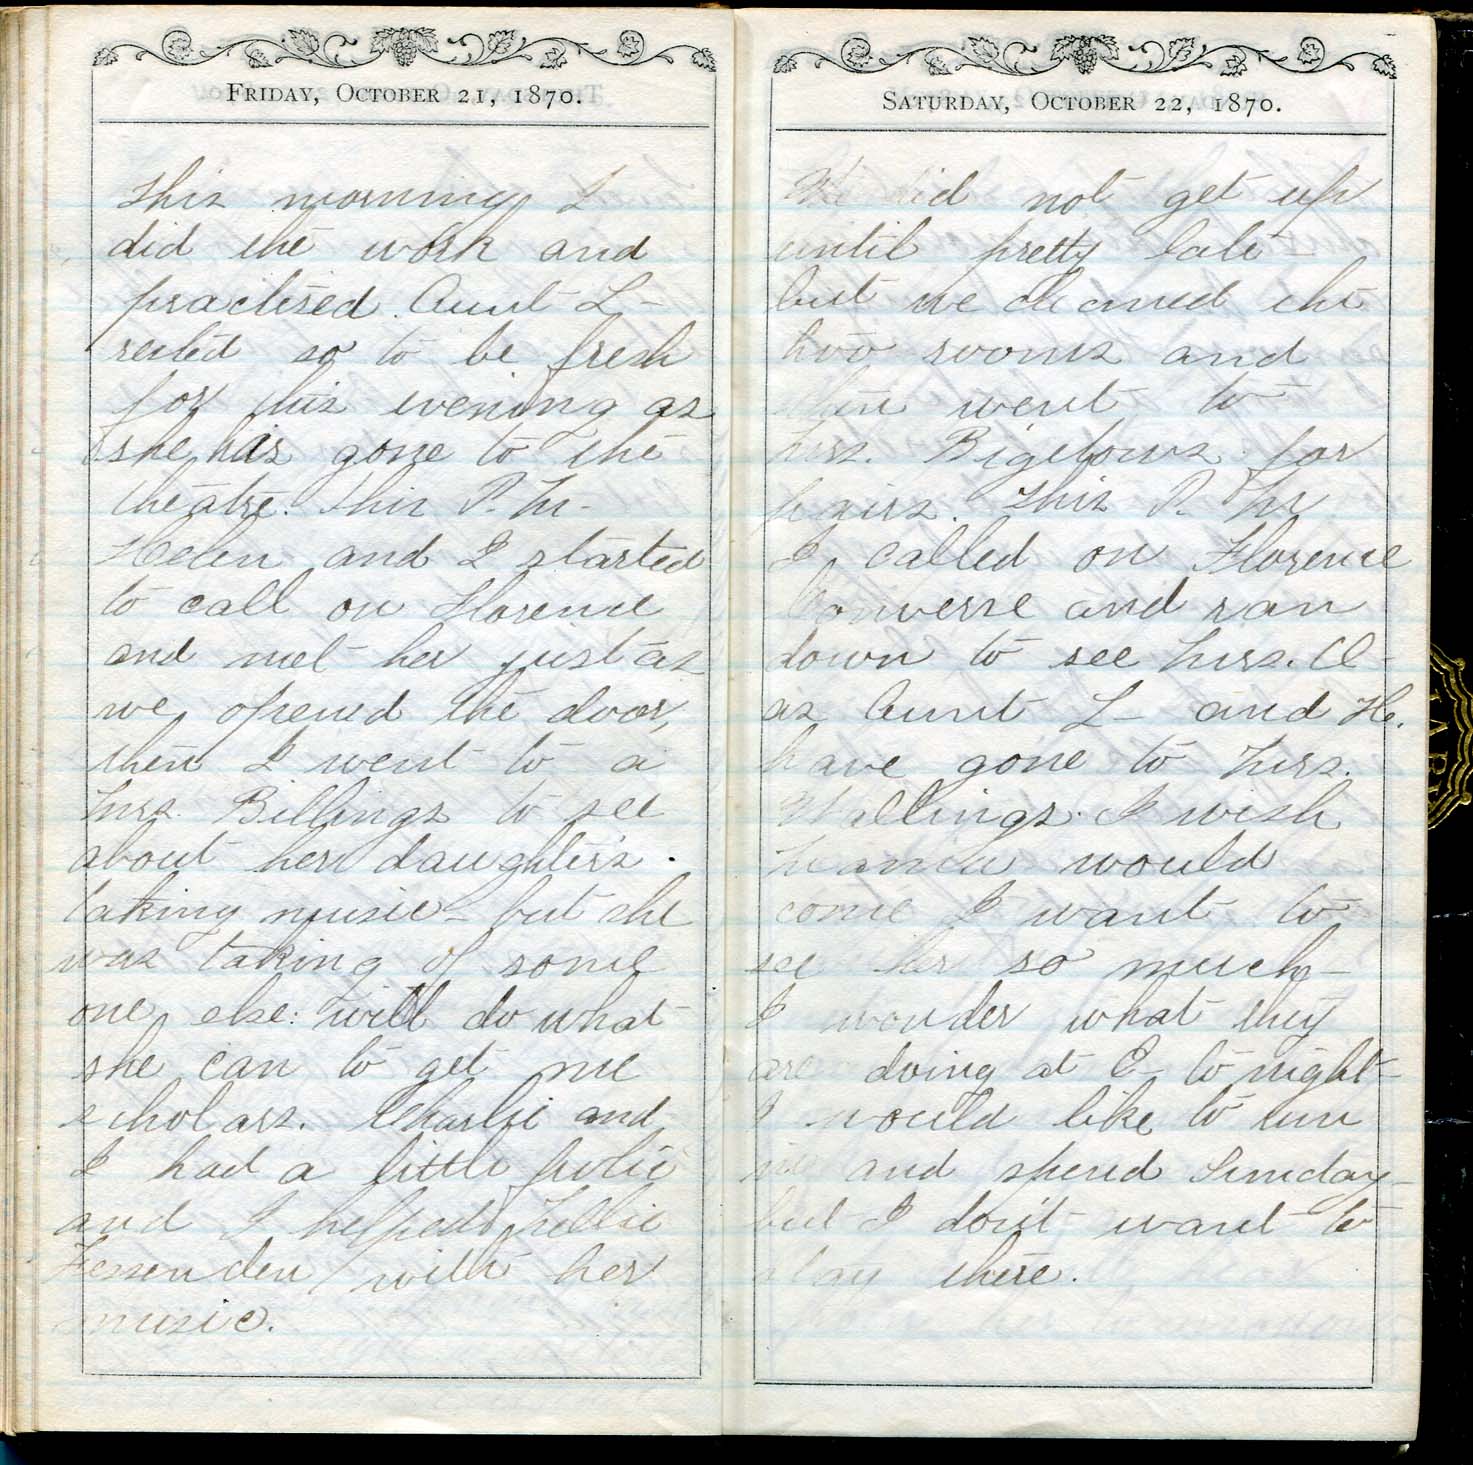 FRIDAY, OCTOBER 21, 1870.
This morning I
did the work and
practised. Aunt L-
rested so to be fresh
for this evening as
she has gone to the
theatre. This P. M-
Helen and I started
to call on Florence
and met her just as
we opened the door,
then I went to a
Mrs. Billings to see
about her daughter's
taking music- but she
was taking of some
one else: will do what
she can to get me
scholars. Charlie and
I had a little frolic
and I helped Nellie
Fessenden with her
music.
SATURDAY, OCTOBER 22, 1870.
We did not get up
until pretty late-
but we cleaned the
two rooms and
then went to
Mrs. Bigelows for
pairs. This P. M
I called on Florence
Converse and ran
down to see Mrs. O-
as Aunt L- and H.
have gone to Mrs.
Wallings. I wish
Mama would
come I want to
see her so much-
I wonder what they
are doing at E- to night-
I would like to run
in and spend Sunday-
but I don't want to
stay there.